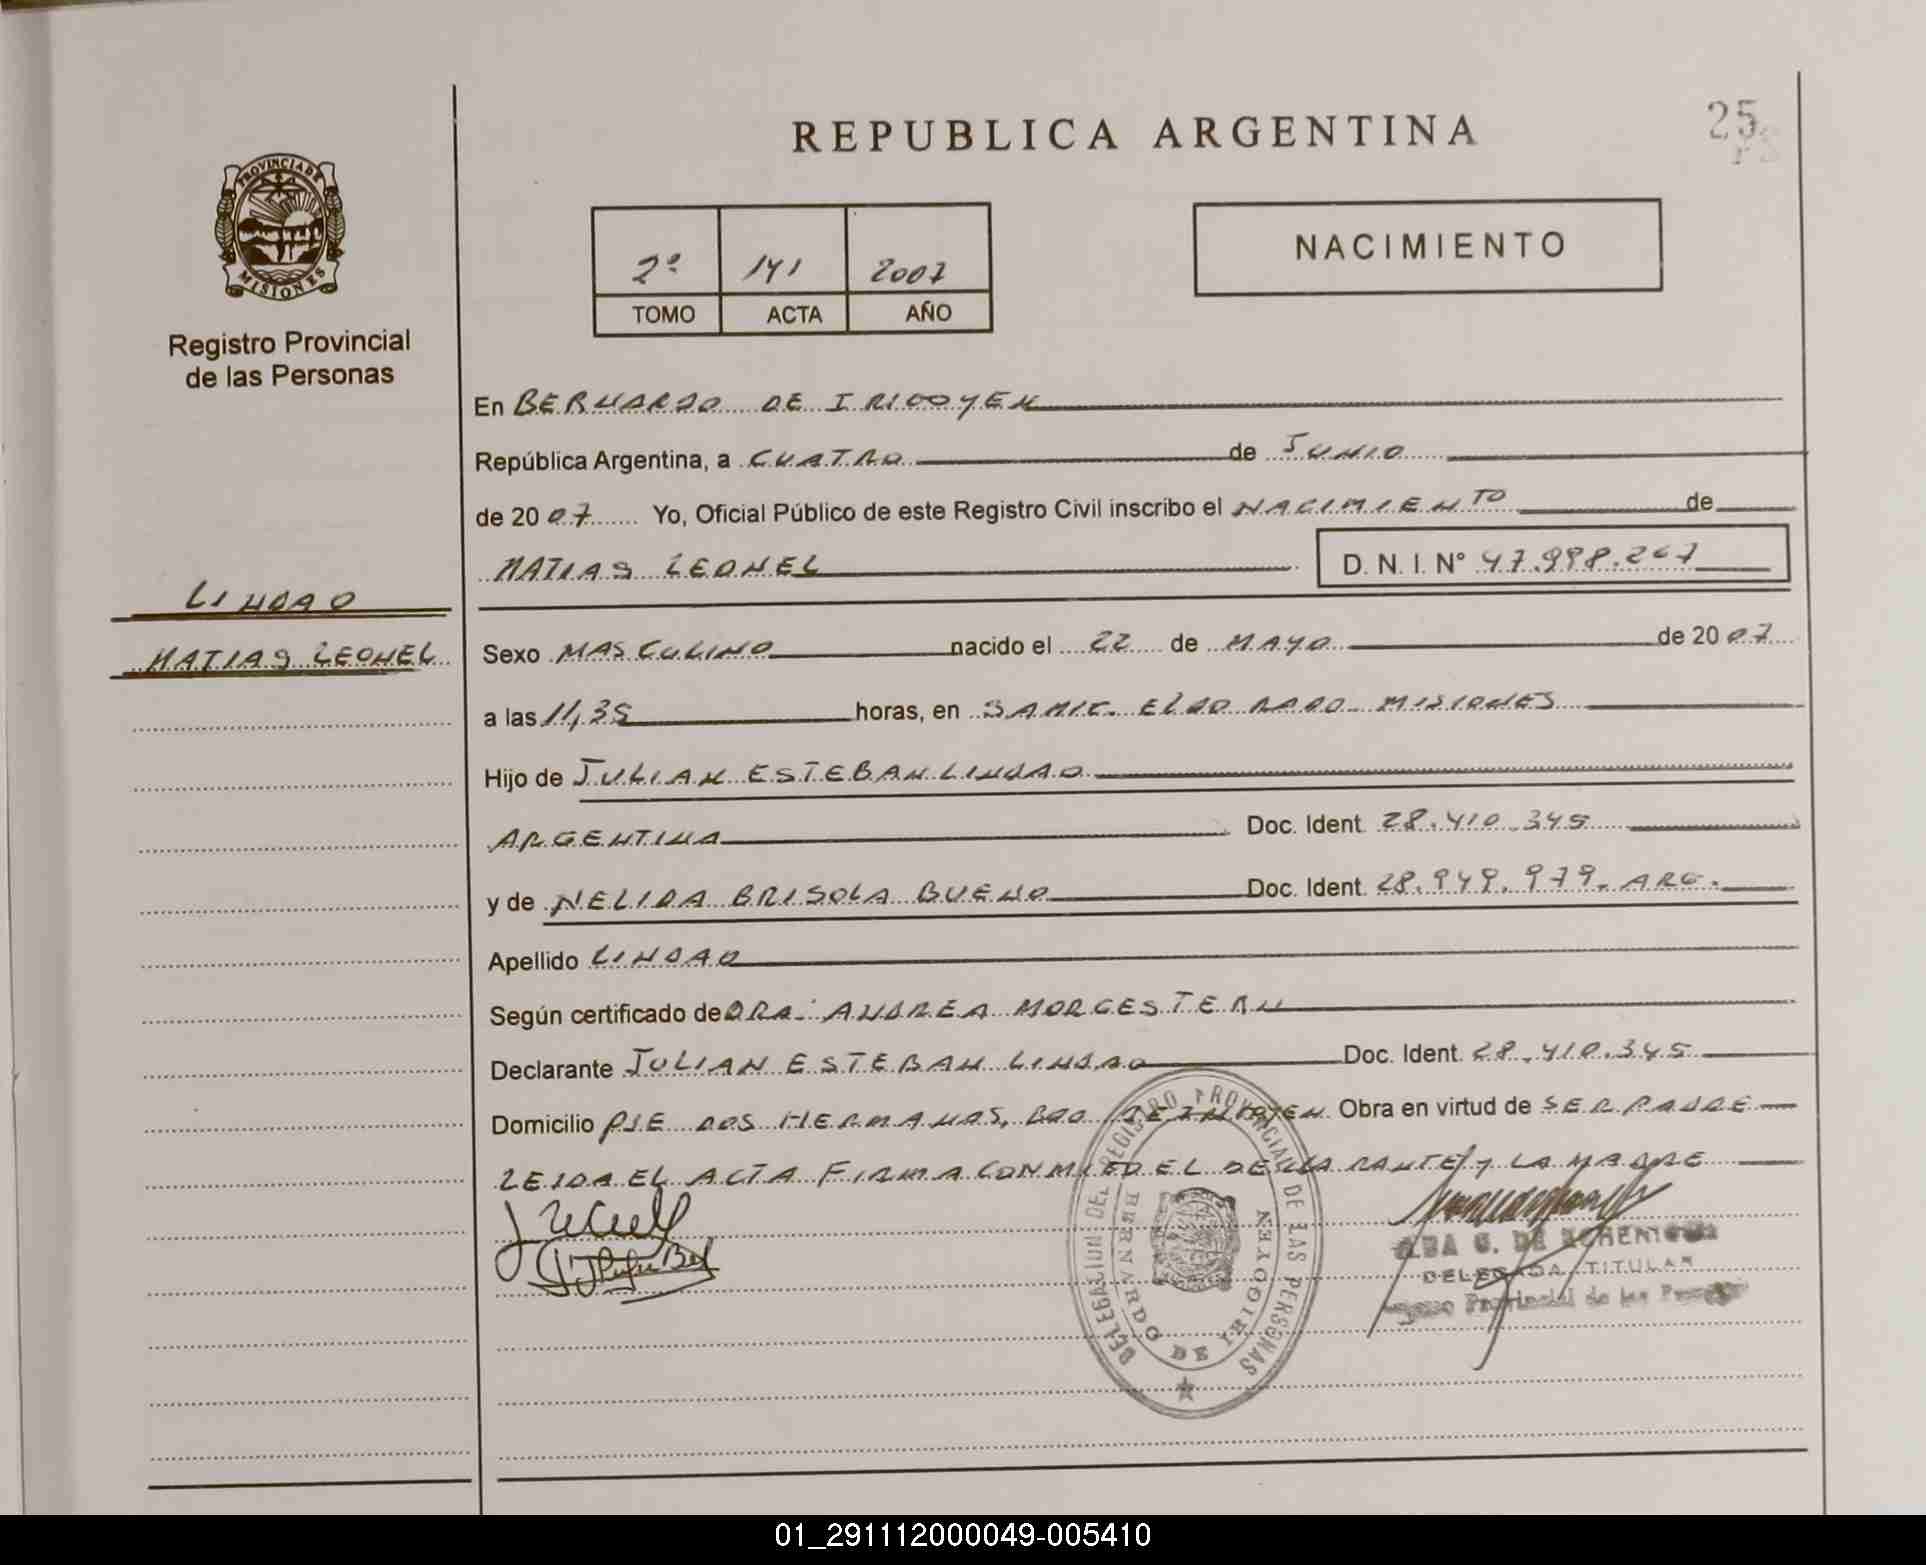 REPUBLICA ARGENTINA
25
PROVINCIA DE
MISIONES
Registro Provincial
de las Personas
2º 141 2007
TOMO ACTA AÑO
NACIMIENTO
En BERNARDO DE IRIGOYEN
República Argentina, a CUATRO de JUNIO
de 2007 Yo, Oficial Público de este Registro Civil inscribo el NACIMIENTO de
MATIAS LEONEL D. N. I. Nº 47.998.267
LINDAO
MATIAS LEONEL
Sexo MASCULINO nacido el 22 de MAYO de 2007
a las 11,35 horas, en SAMIC. ELDORADO. MISIONES
Hijo de JULIAN ESTEBAN LINDAO
ARGENTINA Doc. Ident. 28.410.345
y de NELIDA BRISOLA BUENO Doc. Ident. 28.949.979. ARG.
Apellido LINDAO
Según certificado de DRA. ANDREA MORGESTERN
Declarante JULIAN ESTEBAN LINDAO Doc. Ident. 28.410.345
Domicilio PJE DOS HERMANAS, BDO DE IRIGOYEN Obra en virtud de SER PADRE
LEIDA EL ACTA FIRMA CONMIGO EL DECLARANTE Y LA MADRE
DELEGACION DEL REGISTRO PROVINCIAL DE LAS PERSONAS
BERNARDO DE IRIGOYEN
DELEGADA TITULAR
Provincial de las
01_291112000049-005410